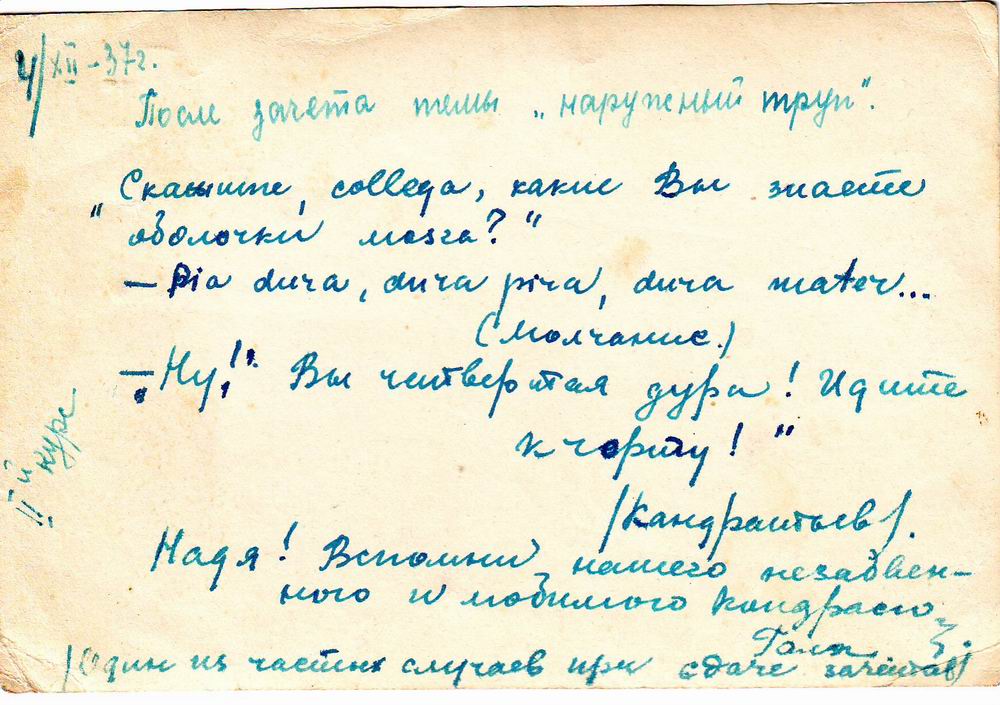 4/XII-37г.
После зачета темы „наружный труп".
„Скажите, collega, какие Вы знаете
оболочки мозга?"
— Pia dura, dura pira, dura mater...
(Молчание.)
— „Ну!" Вы четвертая дура! Идите
к чорту!"
/Кандратьев/.
IIй курс
Надя! Вспомни нашего незабвен-
ного и любимого Кондрасю
Галя
/Один из частых случаев при сдаче зачетов/